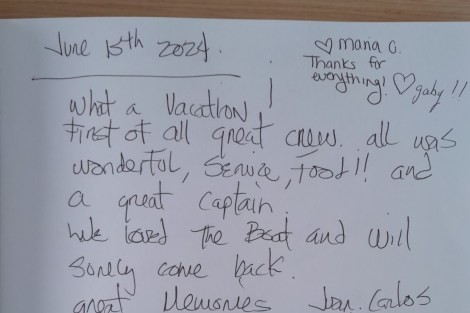 June 15th 2024.
♡ maria c.
Thanks for
everything! ♡ gaby !!
What a Vacation!
First of all great crew. all was
wonderful, Service, Food!! and
a great Captain.
We loved the Boat and will
Sorely come back.
great Memories Jean. Carlos